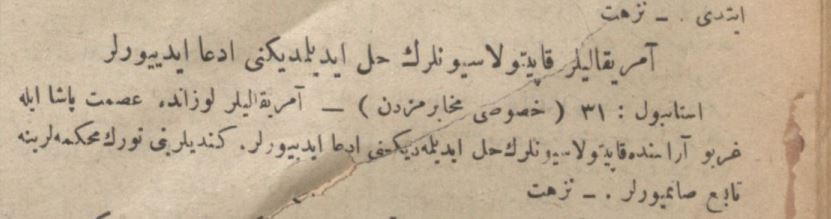 ایتدی . ــ نزهت
آمریقالیلر قاپیتولاسیونلرك حل ایدیلمدیکنی ادعا ایدییورلر
استانبول : ٣١ ( خصوصی مخابرمزدن ) ــ آمریقالیلر لوزانده عصمت پاشا ایله
غریو آراسنده قاپیتولاسیونلرك حل ایدیلمه‌دیکنی ادعا ایدییورلر. کندیلرینی تورك محکمه‌لرینه
تابع صانمیورلر . ــ نزهت